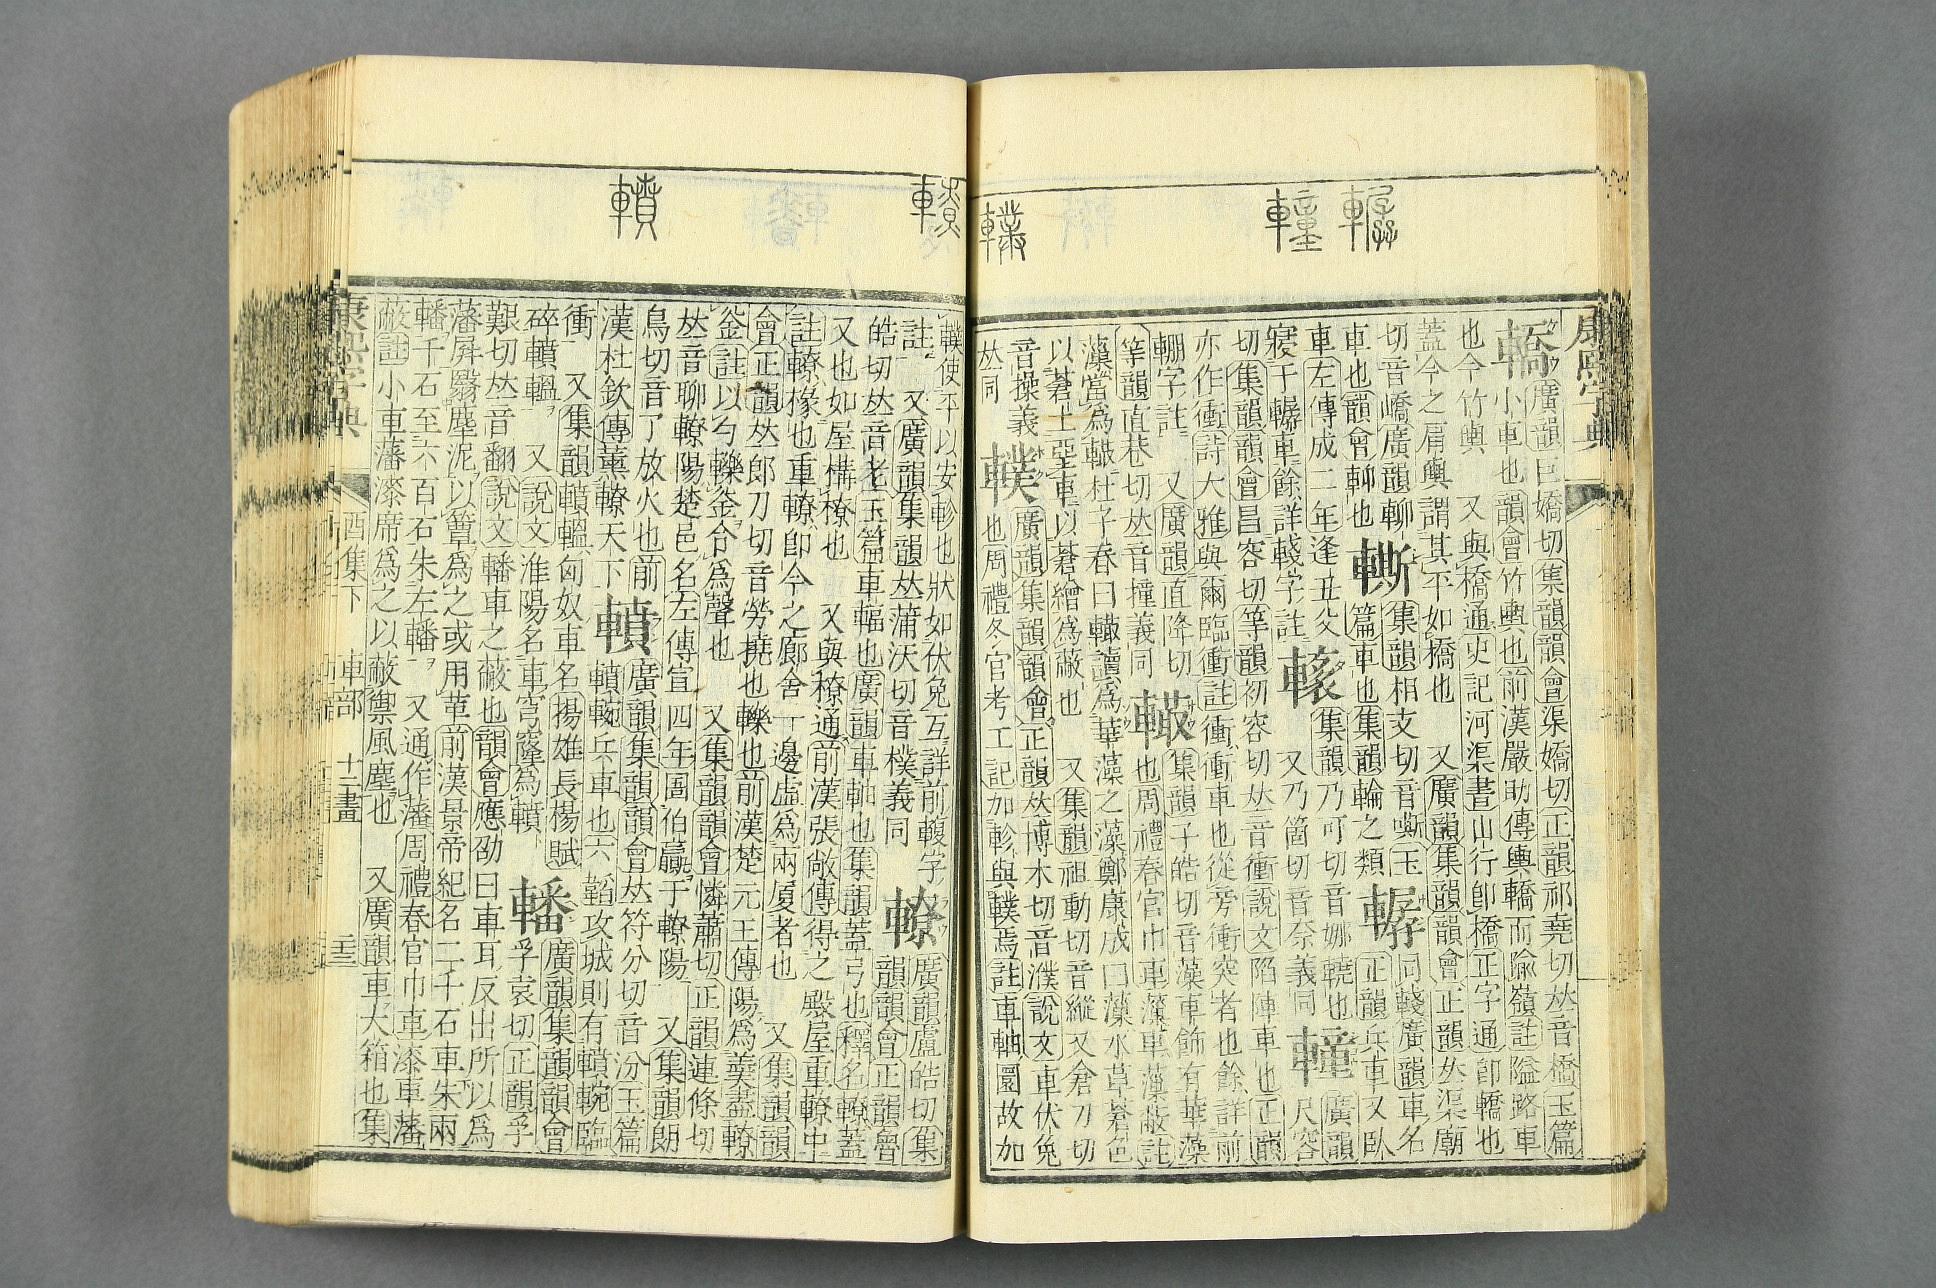 康熙字典
轎 廣韻巨嬌切集韻韻會渠嬌切正韻祁堯切𠀤音橋玉篇
小車也韻會竹輿也前漢嚴助傳輿轎而隃嶺註隘路車
也今竹輿 又與橋通史記河渠書山行卽橋正字通卽轎也
蓋今之肩輿謂其平如橋也 又廣韻集韻韻會正韻𠀤渠廟
切音嶠廣韻轎 集韻相支切音嘶玉 同轏廣韻車名
車也韻會轎也 篇車也集韻輪之類 正韻兵車又臥
車左傳成二年逢丑父 集韻乃可切音娜 也
寢于轏車餘詳轏字註 又乃箇切音奈義同 轞 廣韻
切集韻韻會昌容切等韻初容切𠀤音衝說文陷陣車也正韻
亦作衝詩大雅與爾臨衝註衝衝車也從旁衝突者也餘詳前
輣字註 又廣韻直降切 集韻子皓切音藻車飾有華藻
等韻直巷切𠀤音撞義同 也周禮春官巾車藻車藻蔽註
藻當爲轍杜子春曰轍讀爲華藻之藻鄭康成曰藻水草蒼色
以蒼土堊車以蒼繒爲蔽也 又集韻祖動切音緫又倉刀切
音操義 廣韻集韻韻會正韻𠀤博木切音濮說文車伏兔
𠀤同 轐 也周禮冬官考工記加軫與轐焉註車軸圍故加
轐使平以安軫也狀如伏兔互詳前輹字 轑 廣韻盧皓切集
註 又廣韻集韻𠀤蒲沃切音樸義同 韻韻會正韻魯
皓切𠀤音老玉篇車輻也廣韻車軸也集韻蓋弓也釋名轑蓋
又也如屋構橑也 又與橑通前漢張敞傳得之殿屋重轑中
註轑椽也重轑卽今之廊舍一邊虛爲兩廈者也 又集韻韻
會正韻𠀤郞刀切音勞撓也轢也前漢楚元王傳陽爲羹盡轑
釜註以勺轢釜令爲聲也 又集韻韻會憐蕭切正韻連條切
𠀤音聊轑陽楚邑名左傳宣四年圄伯嬴于轑陽 又集韻朗
鳥切音了放火也前 廣韻集韻韻會𠀤符分切音汾玉篇
漢杜欽傳薰轑天下 轒 轒䡝兵車也六韜攻城則有轒䡝臨
衝 又集韻轒轀匈奴車名揚雄長楊賦 廣韻集韻韻會
碎轒轀 又說文淮陽名車穹窿爲轒 轓 孚袁切正韻孚
艱切𠀤音翻說文轓車之蔽也韻會應劭曰車耳反出所以爲
藩屛翳塵泥以簟爲之或用革前漢景帝紀名二千石車朱兩
轓千石至六百石朱左轓 又通作藩周禮春官巾車漆車藩
蔽註小車藩漆席爲之以蔽禦風塵也 又廣韻車大箱也集
康熙字典 酉集下 車部 十二畫